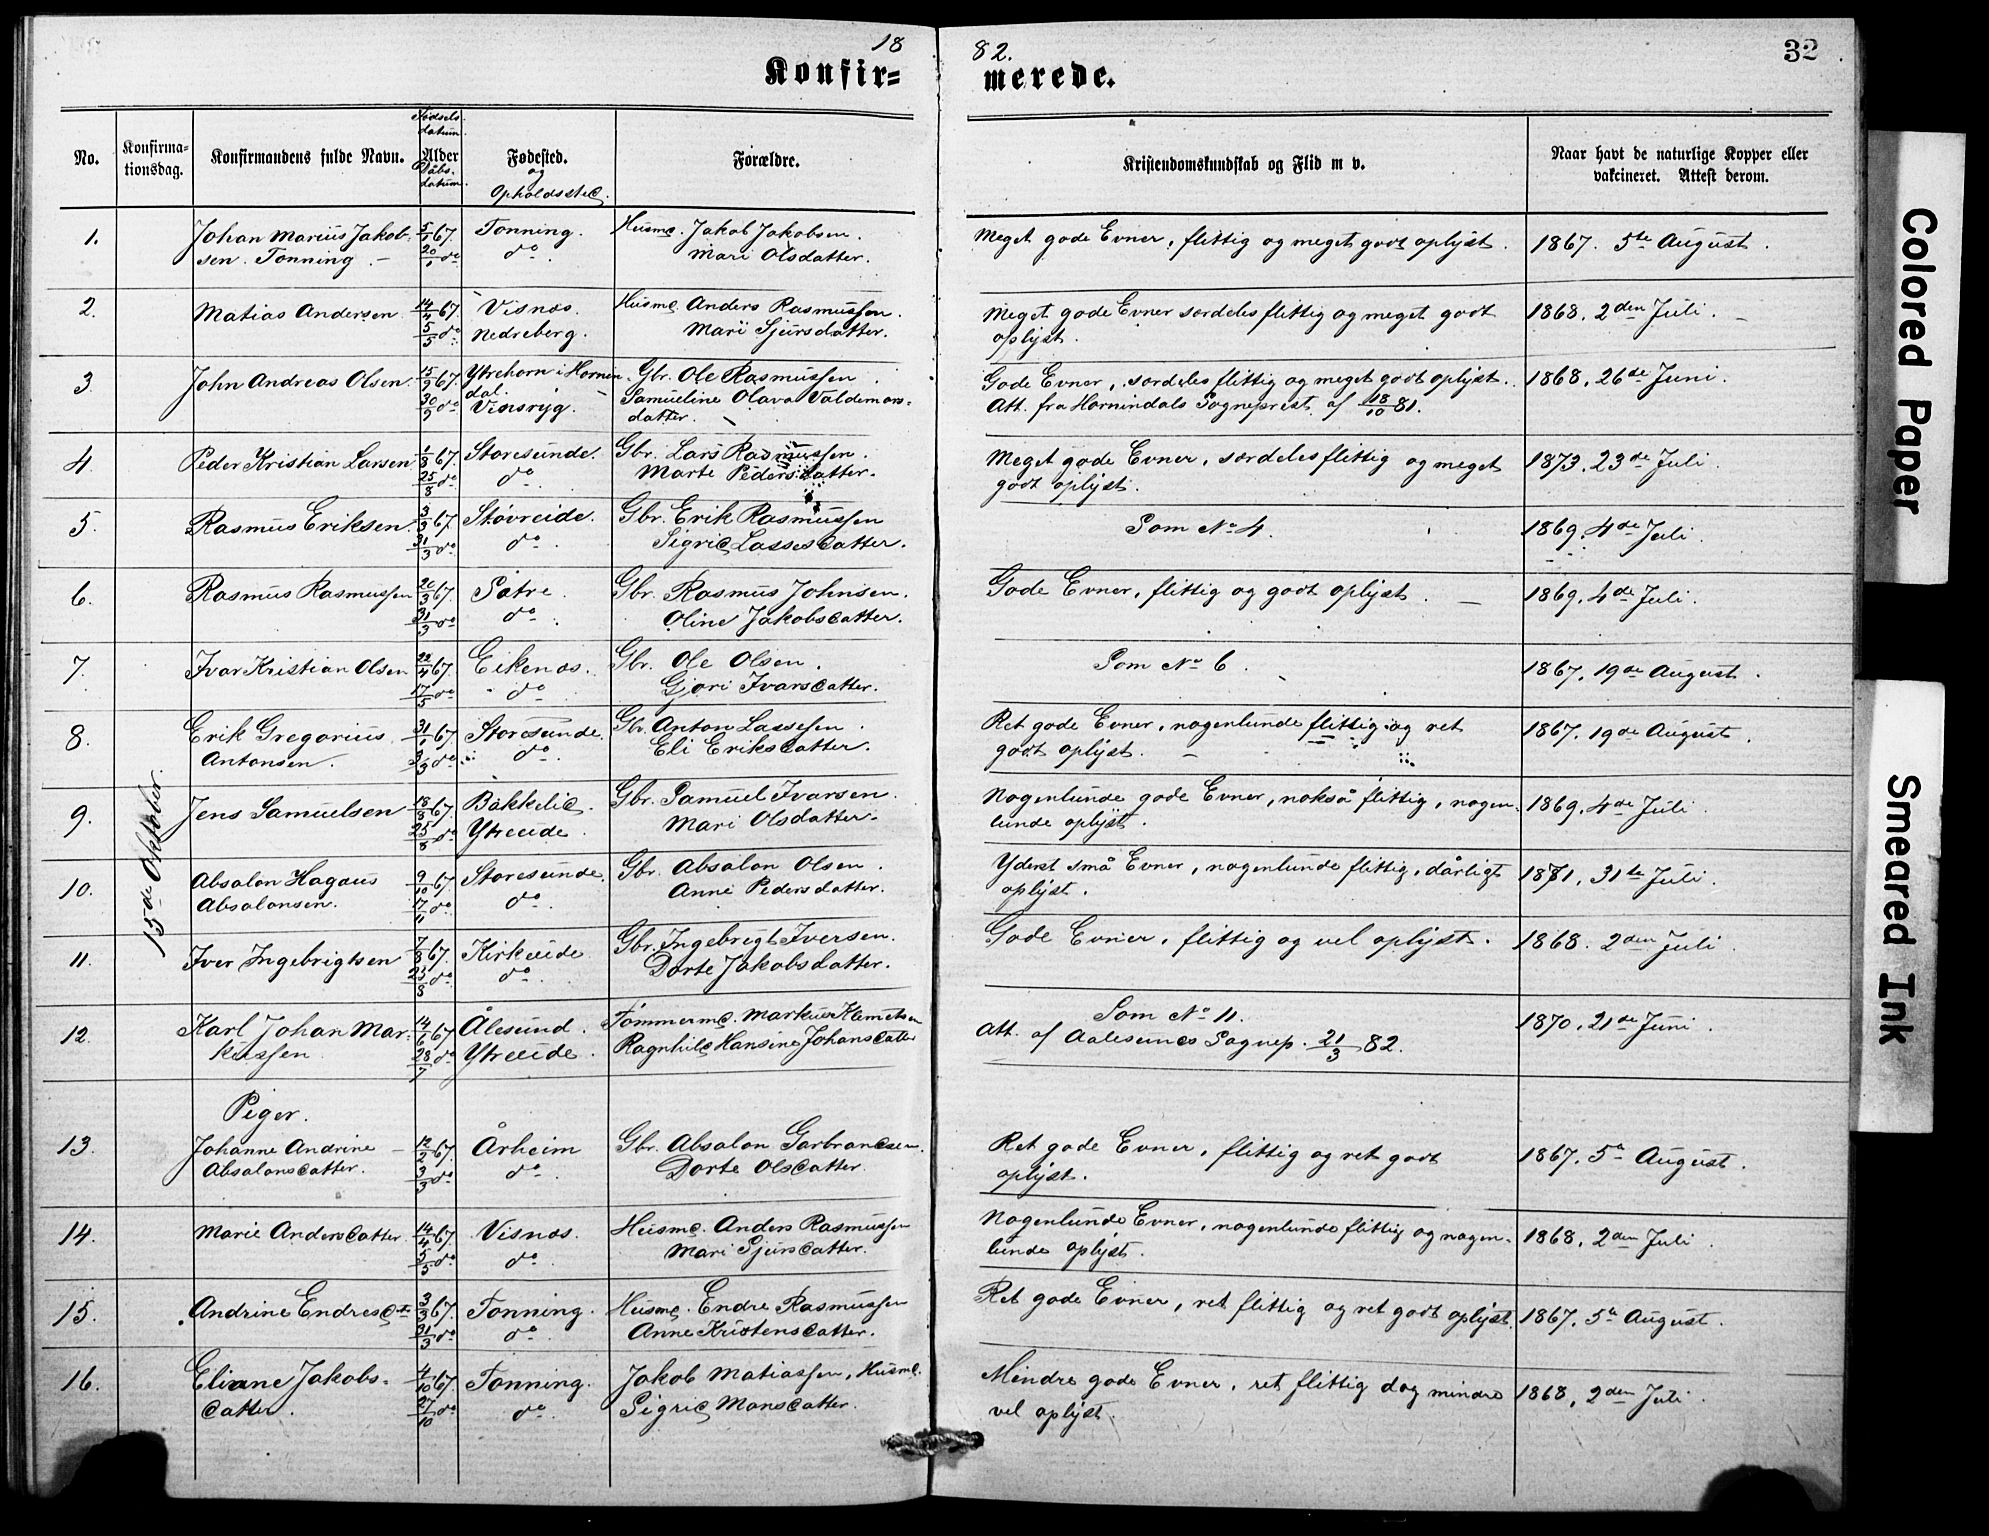 18 82. 32
Konfir= merede.
No. Konfirma-tionsdag. Konfirmandens fulde Navn. Fødsels datum Alder Dåbs-datum. Fødested. og Opholdssted. Forældre. Kristendomskundskab og Flid m v. Naar havt de naturlige Kopper eller vakcineret. Attest derom.
15de Oktober.
1. Johan Marius Jakob- 5/5 67. Tonning. Husmd. Jakob Jakobsen Meget gode Evner, flittig og meget godt oplyst. 1867. 5te August.
sen. Tonning. do do Mari Olsdatter.
2. Matias Andersen 14/4 67. Visnæs. Husmd. Anders Rasmussen. Meget gode Evner særdeles flittig og meget godt 1868. 2den Juli.
5/5 do Nedreberg. Mari Sjursdatter. oplyst.
3. John Andreas Olsen 15/9 67. Ytrehorn i Hornin Gbr. Ole Rasmussen Gode Evner, særdeles flittig og meget godt oplyst. 1868. 26de Juni.
30/9 do dal. Vinsryg. Samueline Olava Valdemars= Att. fra Hornindals Sogneprest af 18/10 81.
datter.
4. Peder Kristian Larsen 67. Storesunde. Gbr. Lars Rasmussen. Meget gode Evner, særdeles flittig og meget 1873. 23de Juli.
25/8 do do Marte Pedersdatter. godt oplyst.
5. Rasmus Eriksen 3/3 67. Støvreide. Gbr. Erik Rasmussen Som No 4. 1869. 4de Juli.
31/3 do do Sigrid Lassesdatter.
6. Rasmus Rasmussen 20/3 67. Sætre. Gbr. Rasmus Johnsen. Gode Evner, flittig og godt oplyst. 1869. 4de Juli.
31/3 do do Oline Jakobsdatter.
7. Ivar Kristian Olsen 22/4 67. Eikenæs. Gbr. Ole Olsen. Som No 6. 1867. 19de August.
17/5 do do Gjøri Ivarsdatter.
8. Erik Gregorius 31/1 67. Storesunde. Gbr. Anton Lassesen. Ret gode Evner, nogenlunde flittig og ret 1867. 19de August.
Antonsen. 3/3 do do Eli Eriksdatter. godt oplyst.
9. Jens Samuelsen 18/8 67. Bakkelid. Gbr. Samuel Ivarsen. Nogenlunde gode Evner, nokså flittig, nogen- 1869. 4de Juli
25/8 do Ytreeide. Mari Olsdatter. lunde oplyst.
10. Absalon Hagaus 9/10 67. Storesunde. Gbr. Absalon Olsen. Yderst små Evner, nogenlunde flittig, dårligt 1871. 31te Juli.
Absalonsen. 17/11 do do Anne Pedersdatter. oplyst.
11. Iver Ingebrigtsen 7/8 67. Kirkeeide Gbr. Ingebrigt Iversen. Gode Evner, flittig og vel oplyst. 1868. 2den Juli
25/8 do do Dorte Jakobsdatter.
12. Karl Johan Mar- 14/6 67 Ålesund. Tømmermd. Markus Klemetsen Som No 11. 1870. 21de Juni.
kussen 28/7 do Ytreeide. Ragnhild Hansine Johansdatter Att. af Aalesunds Sognep. 21/3 82.
Piger.
13. Johanne Andrine 12/2 67. Årheim Gbr. Absalon Garbrandsen. Ret gode Evner, flittig og ret godt 1867. 5te August.
Absalonsdatter. 3/3 do do Dorte Olsdatter. oplyst.
14. Marie Andersdatter. 14/4 67. Visnæs. Husmd. Anders Rasmussen Nogenlunde Evner, nogenlunde flittig og nogen- 1868. 2den Juli
5/5 do do Mari Sjursdatter. lunde oplyst.
15. Andrine Endresdtr 3/3 67. Tonning. Husmd. Endre Rasmussen Ret gode Evner, ret flittig og ret godt oplyst. 1867. 5te August.
31/3 do do Anne Kristensdatter.
16. Eliane Jakobs- 4/10 67. Tonning. Jakob Matiassen, Husmd. Mindre gode Evner, ret flittig dog mindre 1868. 2den Juli
datter. 27/10 do do Sigrid Monsdatter. vel oplyst.
Colored Paper
Smeared Ink